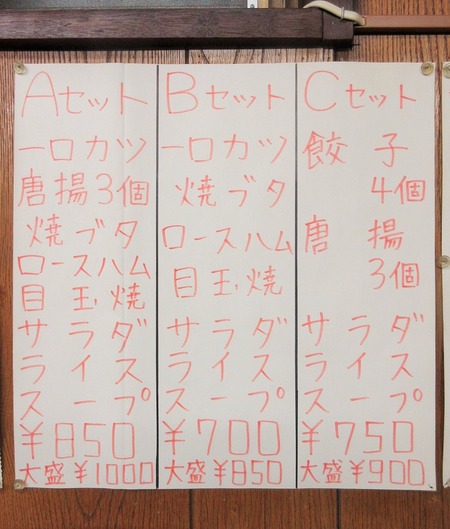 Aセット
一口カツ
唐揚3個
焼ブタ
ロースハム
目玉焼
サラダ
ライス
スープ
¥850
大盛¥1000
Bセット
一口カツ
焼ブタ
ロースハム
目玉焼
サラダ
ライス
スープ
¥700
大盛¥850
Cセット
餃子
4個
唐揚
3個
サラダ
ライス
スープ
¥750
大盛¥900